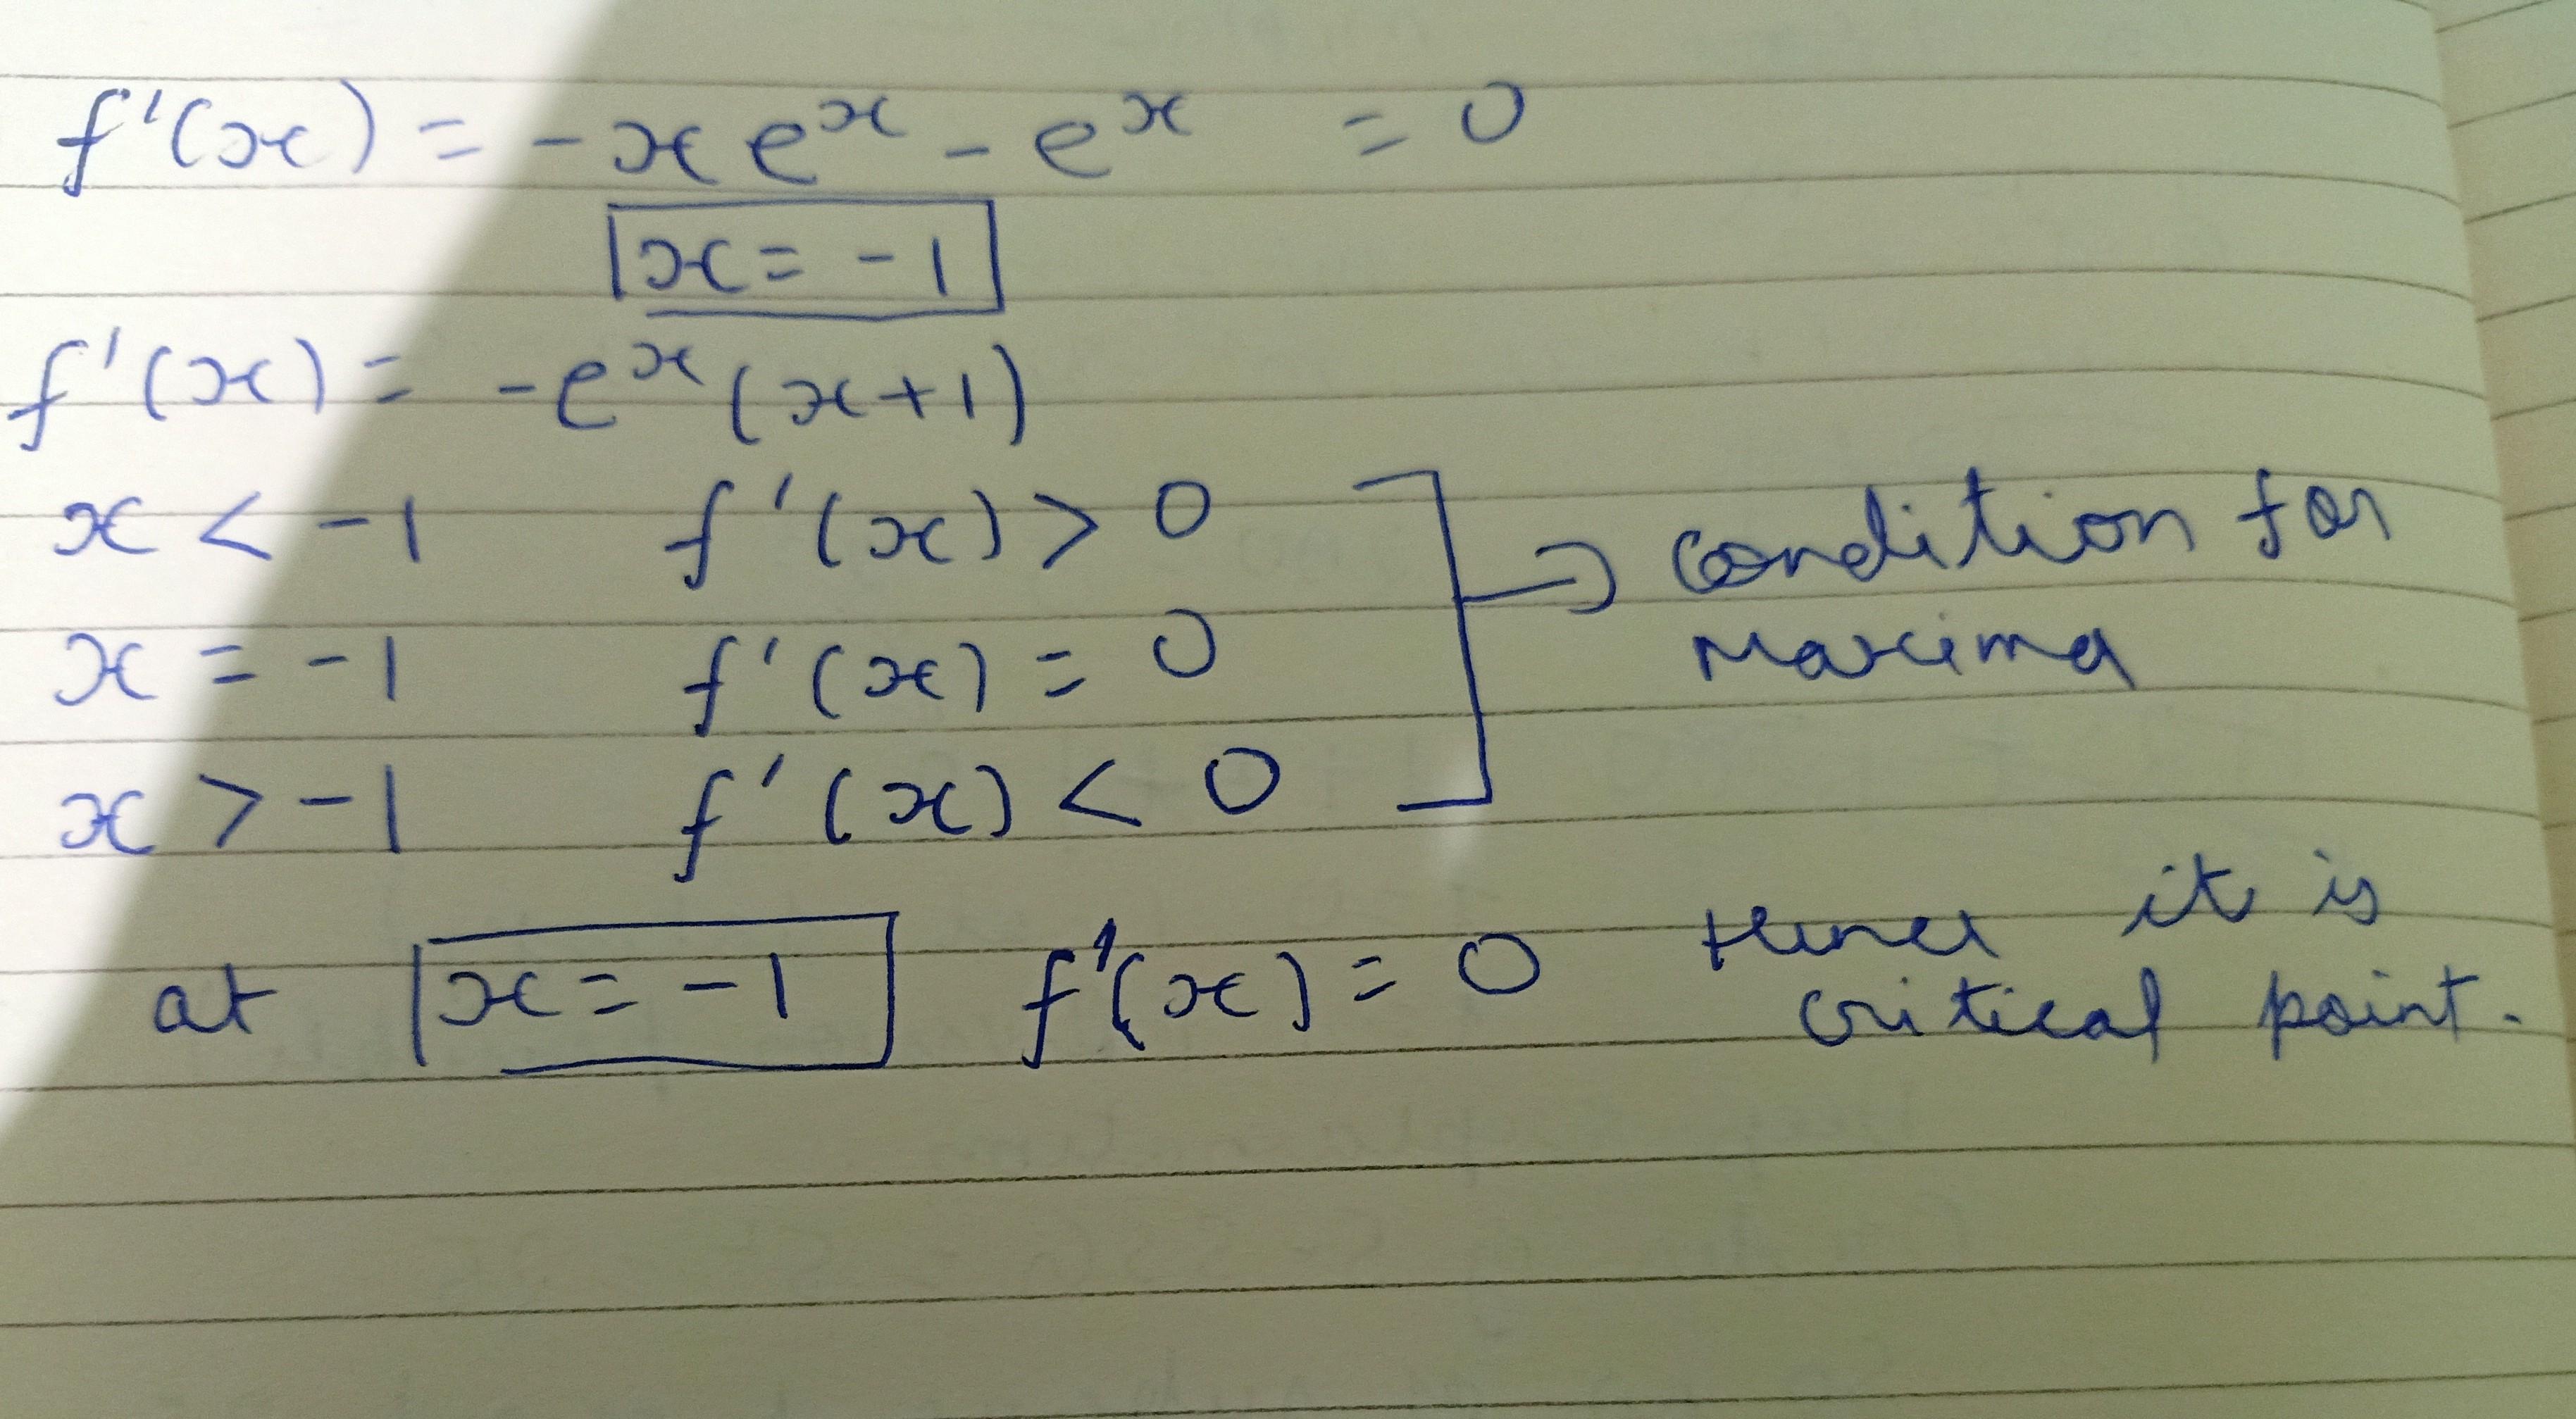 f'(x) = -xeˣ - eˣ = 0
x = -1
f'(x) = -eˣ (x+1)
x < -1 f'(x) > 0
x = -1 f'(x) = 0
x > -1 f'(x) < 0
→ condition for
Maxima
at x = -1 f'(x) = 0 Hence it is
critical point.